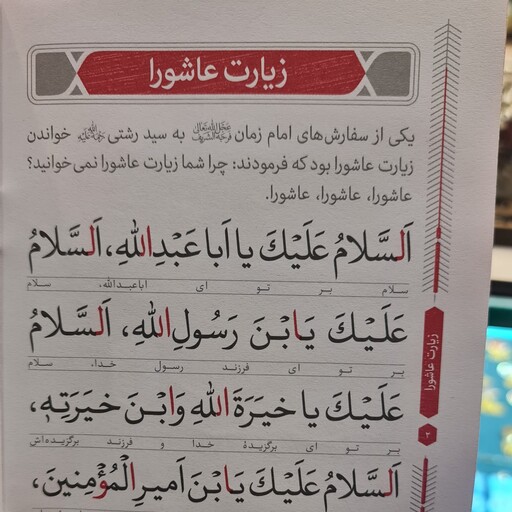 زیارت عاشورا
یکی از سفارش‌های امام زمان عجل‌الله‌تعالی‌فرجه‌الشریف به سید رشتی رحمه‌الله‌علیه خواندن
زیارت عاشورا بود که فرمودند: چرا شما زیارت عاشورا نمی‌خوانید؟
عاشورا، عاشورا، عاشورا.
اَلسَّلامُ عَلَیْكَ یا اَبا عَبْدِاللهِ، اَلسَّلامُ
سلام بر تو ای اباعبدالله، سلام
عَلَیْكَ یَابْنَ رَسُولِ اللهِ، اَلسَّلامُ
بر تو ای فرزند رسول خدا، سلام
عَلَیْكَ یا خیَرَةَ اللهِ وَابْنَ خیَرَتِهِ،
بر تو ای برگزیدهٔ خدا و فرزند برگزیده‌اش
اَلسَّلامُ عَلَیْكَ یَابْنَ اَمیرِ الْمُؤْمِنینَ،
زیارت عاشورا
۲